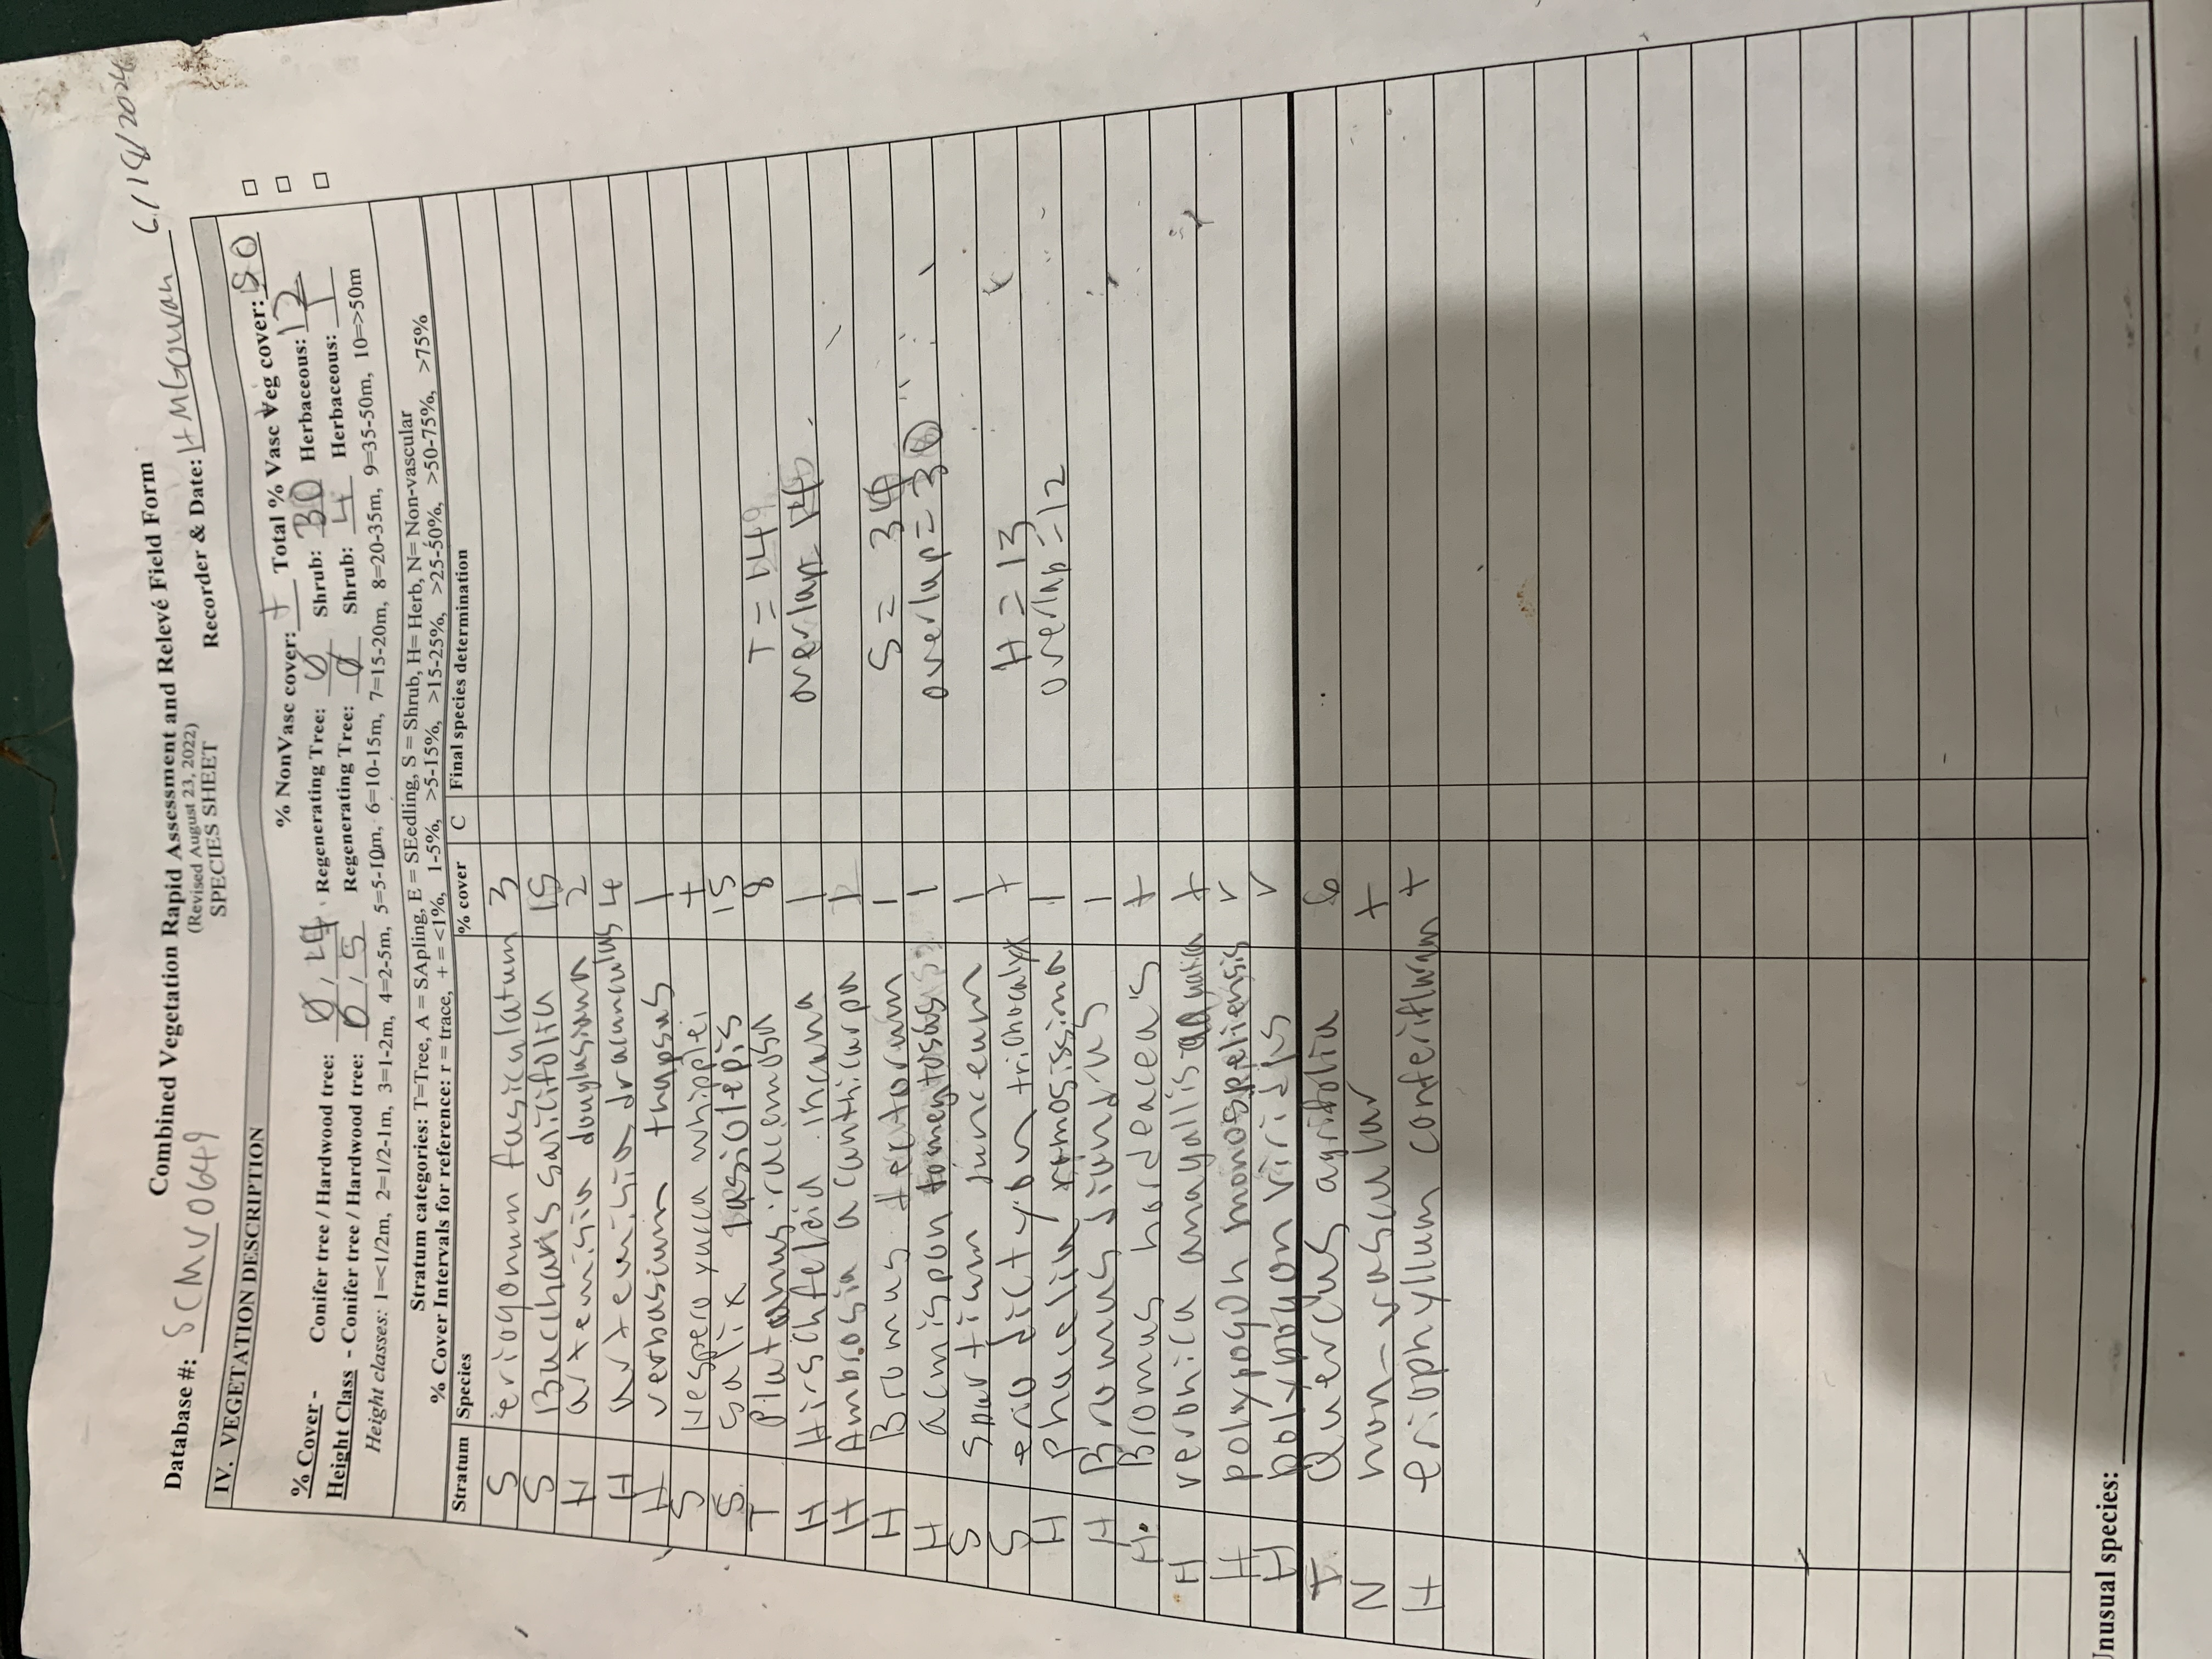 Combined Vegetation Rapid Assessment and Relevé Field Form
(Revised August 23, 2022)
SPECIES SHEET
Database #: SCMV0649
Recorder & Date: HMGowan 6/18/2024
IV. VEGETATION DESCRIPTION
% NonVasc cover: + Total % Vasc Veg cover: 50
% Cover - Conifer tree / Hardwood tree: 0, 14 Regenerating Tree: 0 Shrub: 30 Herbaceous: 12
Height Class - Conifer tree / Hardwood tree: 0, 5 Regenerating Tree: 0 Shrub: 4 Herbaceous: 1
Height classes: 1=<1/2m, 2=1/2-1m, 3=1-2m, 4=2-5m, 5=5-10m, 6=10-15m, 7=15-20m, 8=20-35m, 9=35-50m, 10=>50m
Stratum categories: T=Tree, A = SApling, E = SEedling, S = Shrub, H= Herb, N= Non-vascular
% Cover Intervals for reference: r = trace, + = <1%, 1-5%, >5-15%, >15-25%, >25-50%, >50-75%, >75%
Stratum Species % cover C Final species determination
S eriogonum fasiculatum 3
S Baccharis salicifolia 15
H artemisia douglasiana 2
H artemisia dracunculus 4
H verbascum thapsus 1
S Hesperoyucca whipplei +
S Salix lasiolepis 15
T Platanus racemosa 8 T = 14
H Hirschfeldia incana 1 overlap 14
H Ambrosia acanthicarpa 1
H Bromus tectorum 1 S = 34
H acmispon 1 overlap = 30
S Spartium junceum 1
S eriodictyon trichocalyx + H = 13
H phacelia ramosissima 1 overlap = 12
H Bromus diandrus 1
H Bromus hordeacea's +
H veronica anagallis aquatica +
H polypogon monospeliensis r
H polypogon viridis r
T Quercus agrifolia 6
N non-vascular +
H eriophyllum confertiflorum +
Unusual species: